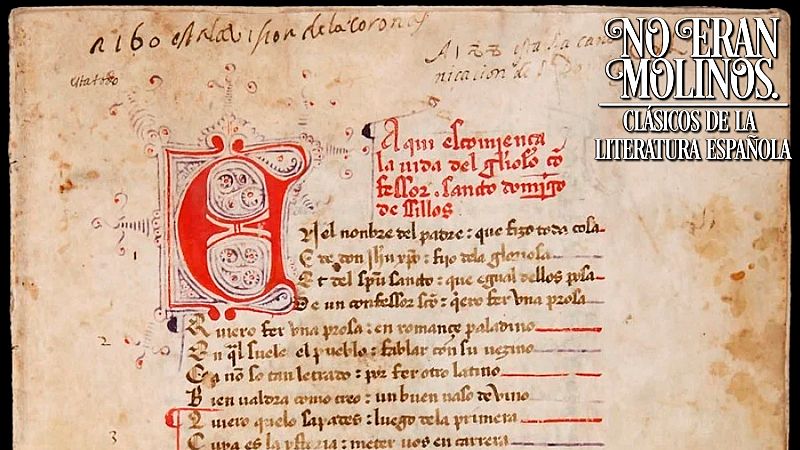 NO ERAN
MOLINOS.
CLÁSICOS DE LA
LITERATURA ESPAÑOLA
a 160 esta la vision de la coronas
A 188 esta la cano
nicacion de
esta todo
Aqui escomiença
la uida del glioso cō
fessor. sancto domīgo
de sillos
EN el nonbre del padre: que fizo toda cosa
E de don jhu xpo: fijo dela gloriosa
Et del spū sancto: que egual dellos posa
De un confessor scō: qero fer vna prosa
1
Quiero fer vna prosa: en romançe paladino
2
En ql suele el pueblo: fablar con su uezino
Ca nō so tan letrado: por fer otro latino
Bien valdra como creo: un buen uaso de vino
Quiero que lo sapades: luego dela primera
3
Cuya es la ystoria: meter uos en carrera